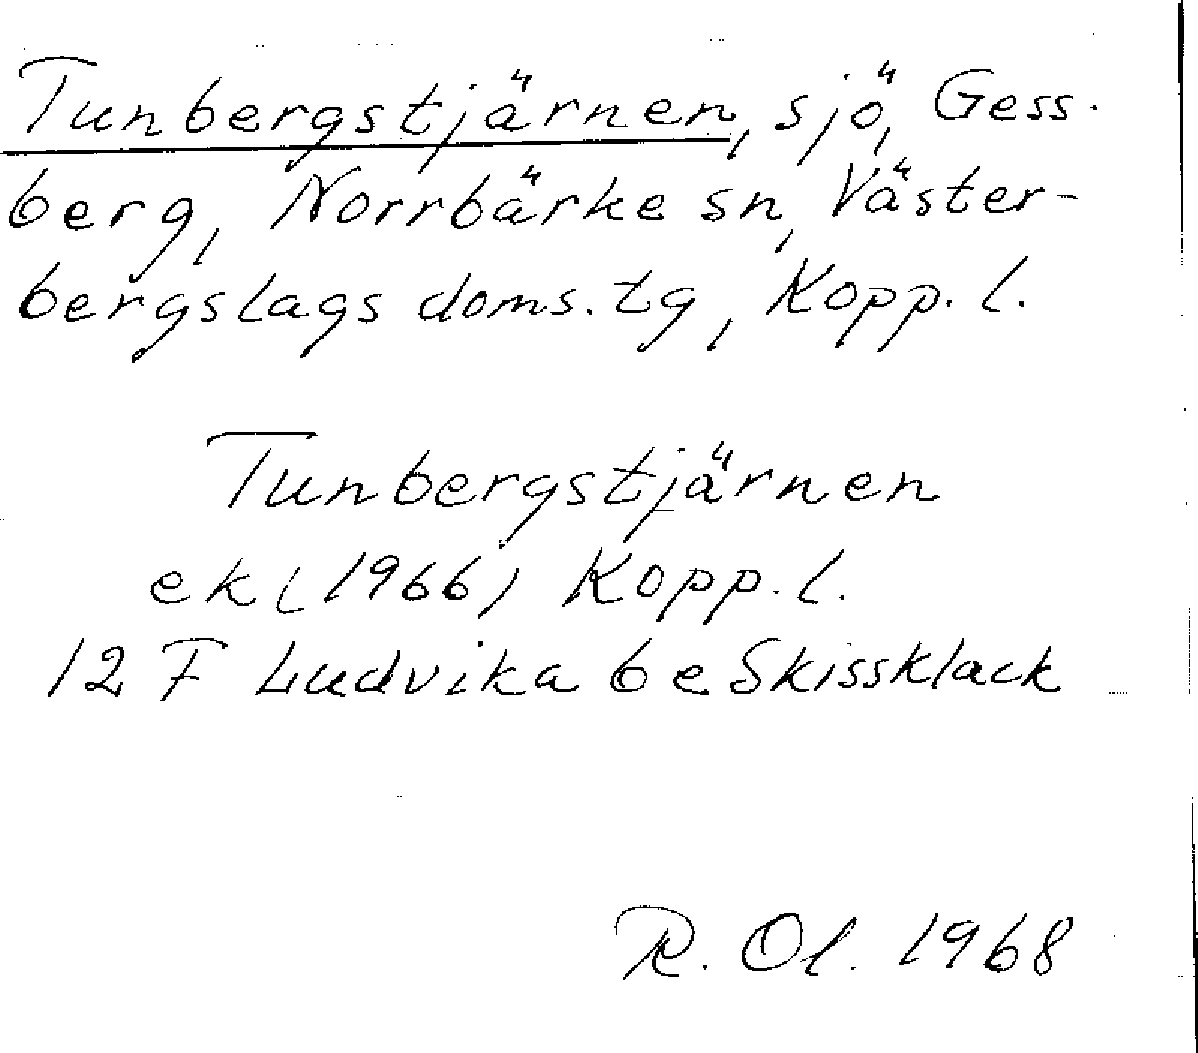 Tunbergstjärnen, sjö, Gess-
berg, Norrbärke sn, Väster-
bergslags doms. tg, Kopp. l.
Tunbergstjärnen
ek (1966) Kopp. l.
12 F Ludvika 6 e Skissklack
R. Ol. 1968